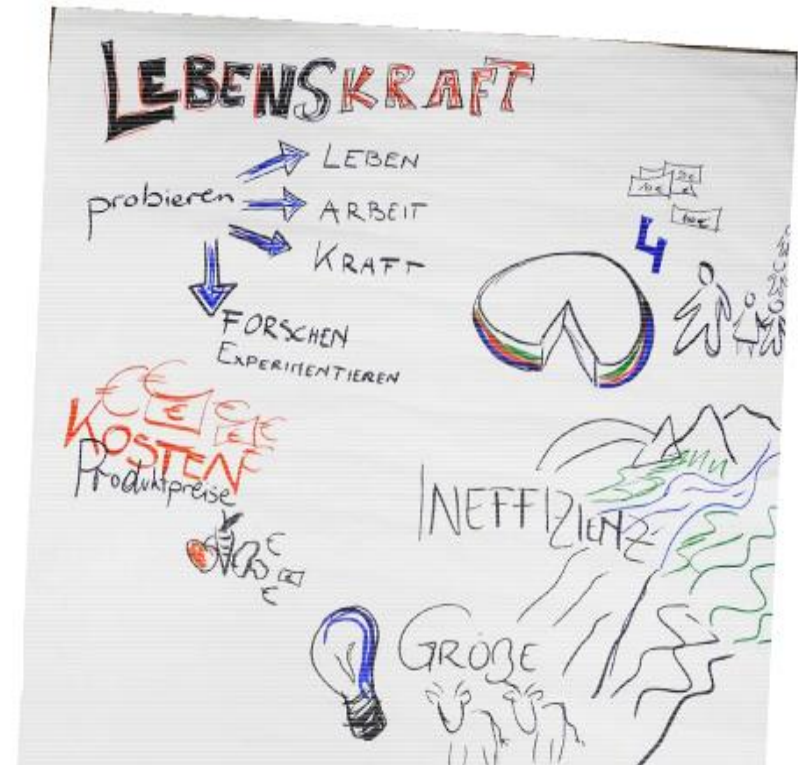 LEBENSKRAFT
probieren
LEBEN
ARBEIT
KRAFT
FORSCHEN
EXPERIMENTIEREN
4
KOSTEN
Produktpreise
INEFFIZIENZ
GRÖßE